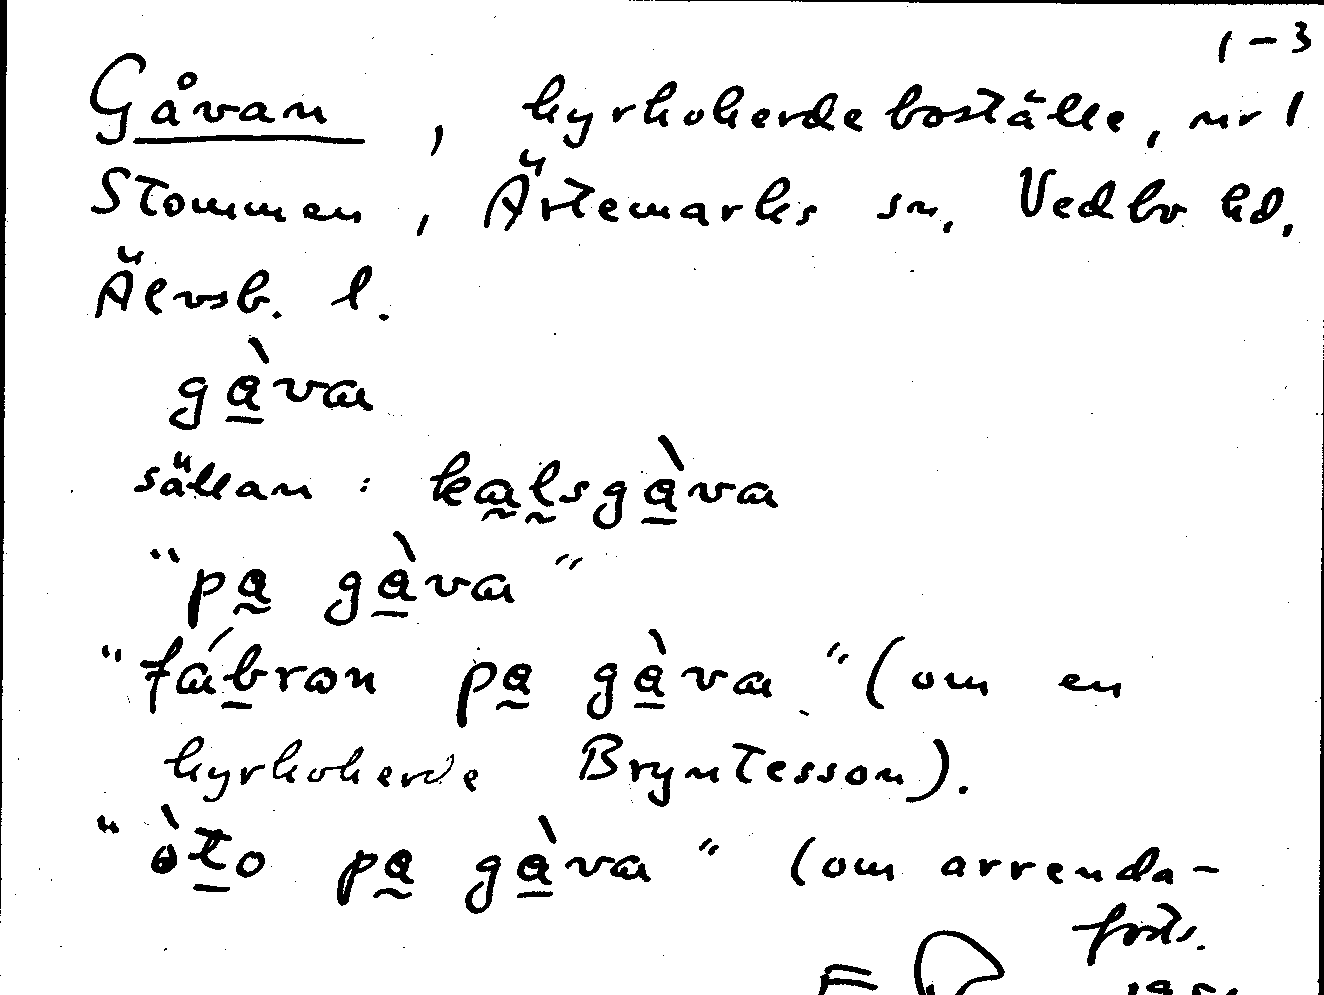 1-3
Gåvan, kyrkoherdeboställe, nr 1
Stommen, Ärtemarks sn, Vedbo hd,
Älvsb. l.
gàva
sällan: kalsgàva
"pa gàva"
"fábron pa gàva" (om en
kyrkoherde Bryntesson).
"òto pa gàva" (om arrenda-
forts.